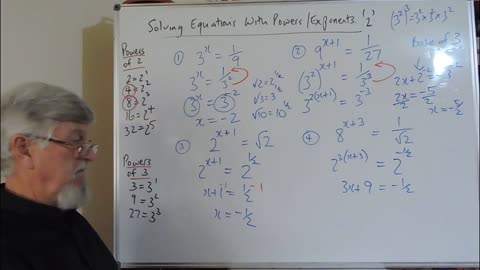 Solving Equations With Powers/Exponents '2'
(3²)³ = 3² × 3² × 3²
Powers of 2
2 = 2¹
4 = 2²
8 = 2³
16 = 2⁴
32 = 2⁵
Powers of 3
3 = 3¹
9 = 3²
27 = 3³
① 3ˣ = 1/9
3ˣ = 1/3²
(3)ˣ = (3)⁻²
x = -2
√2 = 2^½
√3 = 3^½
√10 = 10^½
② 9^(x+1) = 1/27
(3²)^(x+1) = 1/3³
3^(2(x+1)) = 3⁻³
base of 3
2x + 2 = -3
x = -5/2
③ 2^(x+1) = √2
2^(x+1) = 2^½
x+1 -1 = ½ -1
x = -½
④ 8^(x+3) = 1/√2
2^(3(x+3)) = 2^(-½)
3x + 9 = -½